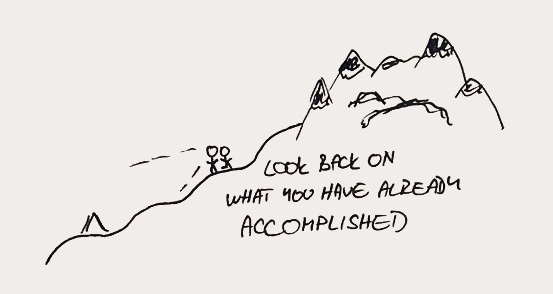 LOOK BACK ON
WHAT YOU HAVE ALREADY
ACCOMPLISHED